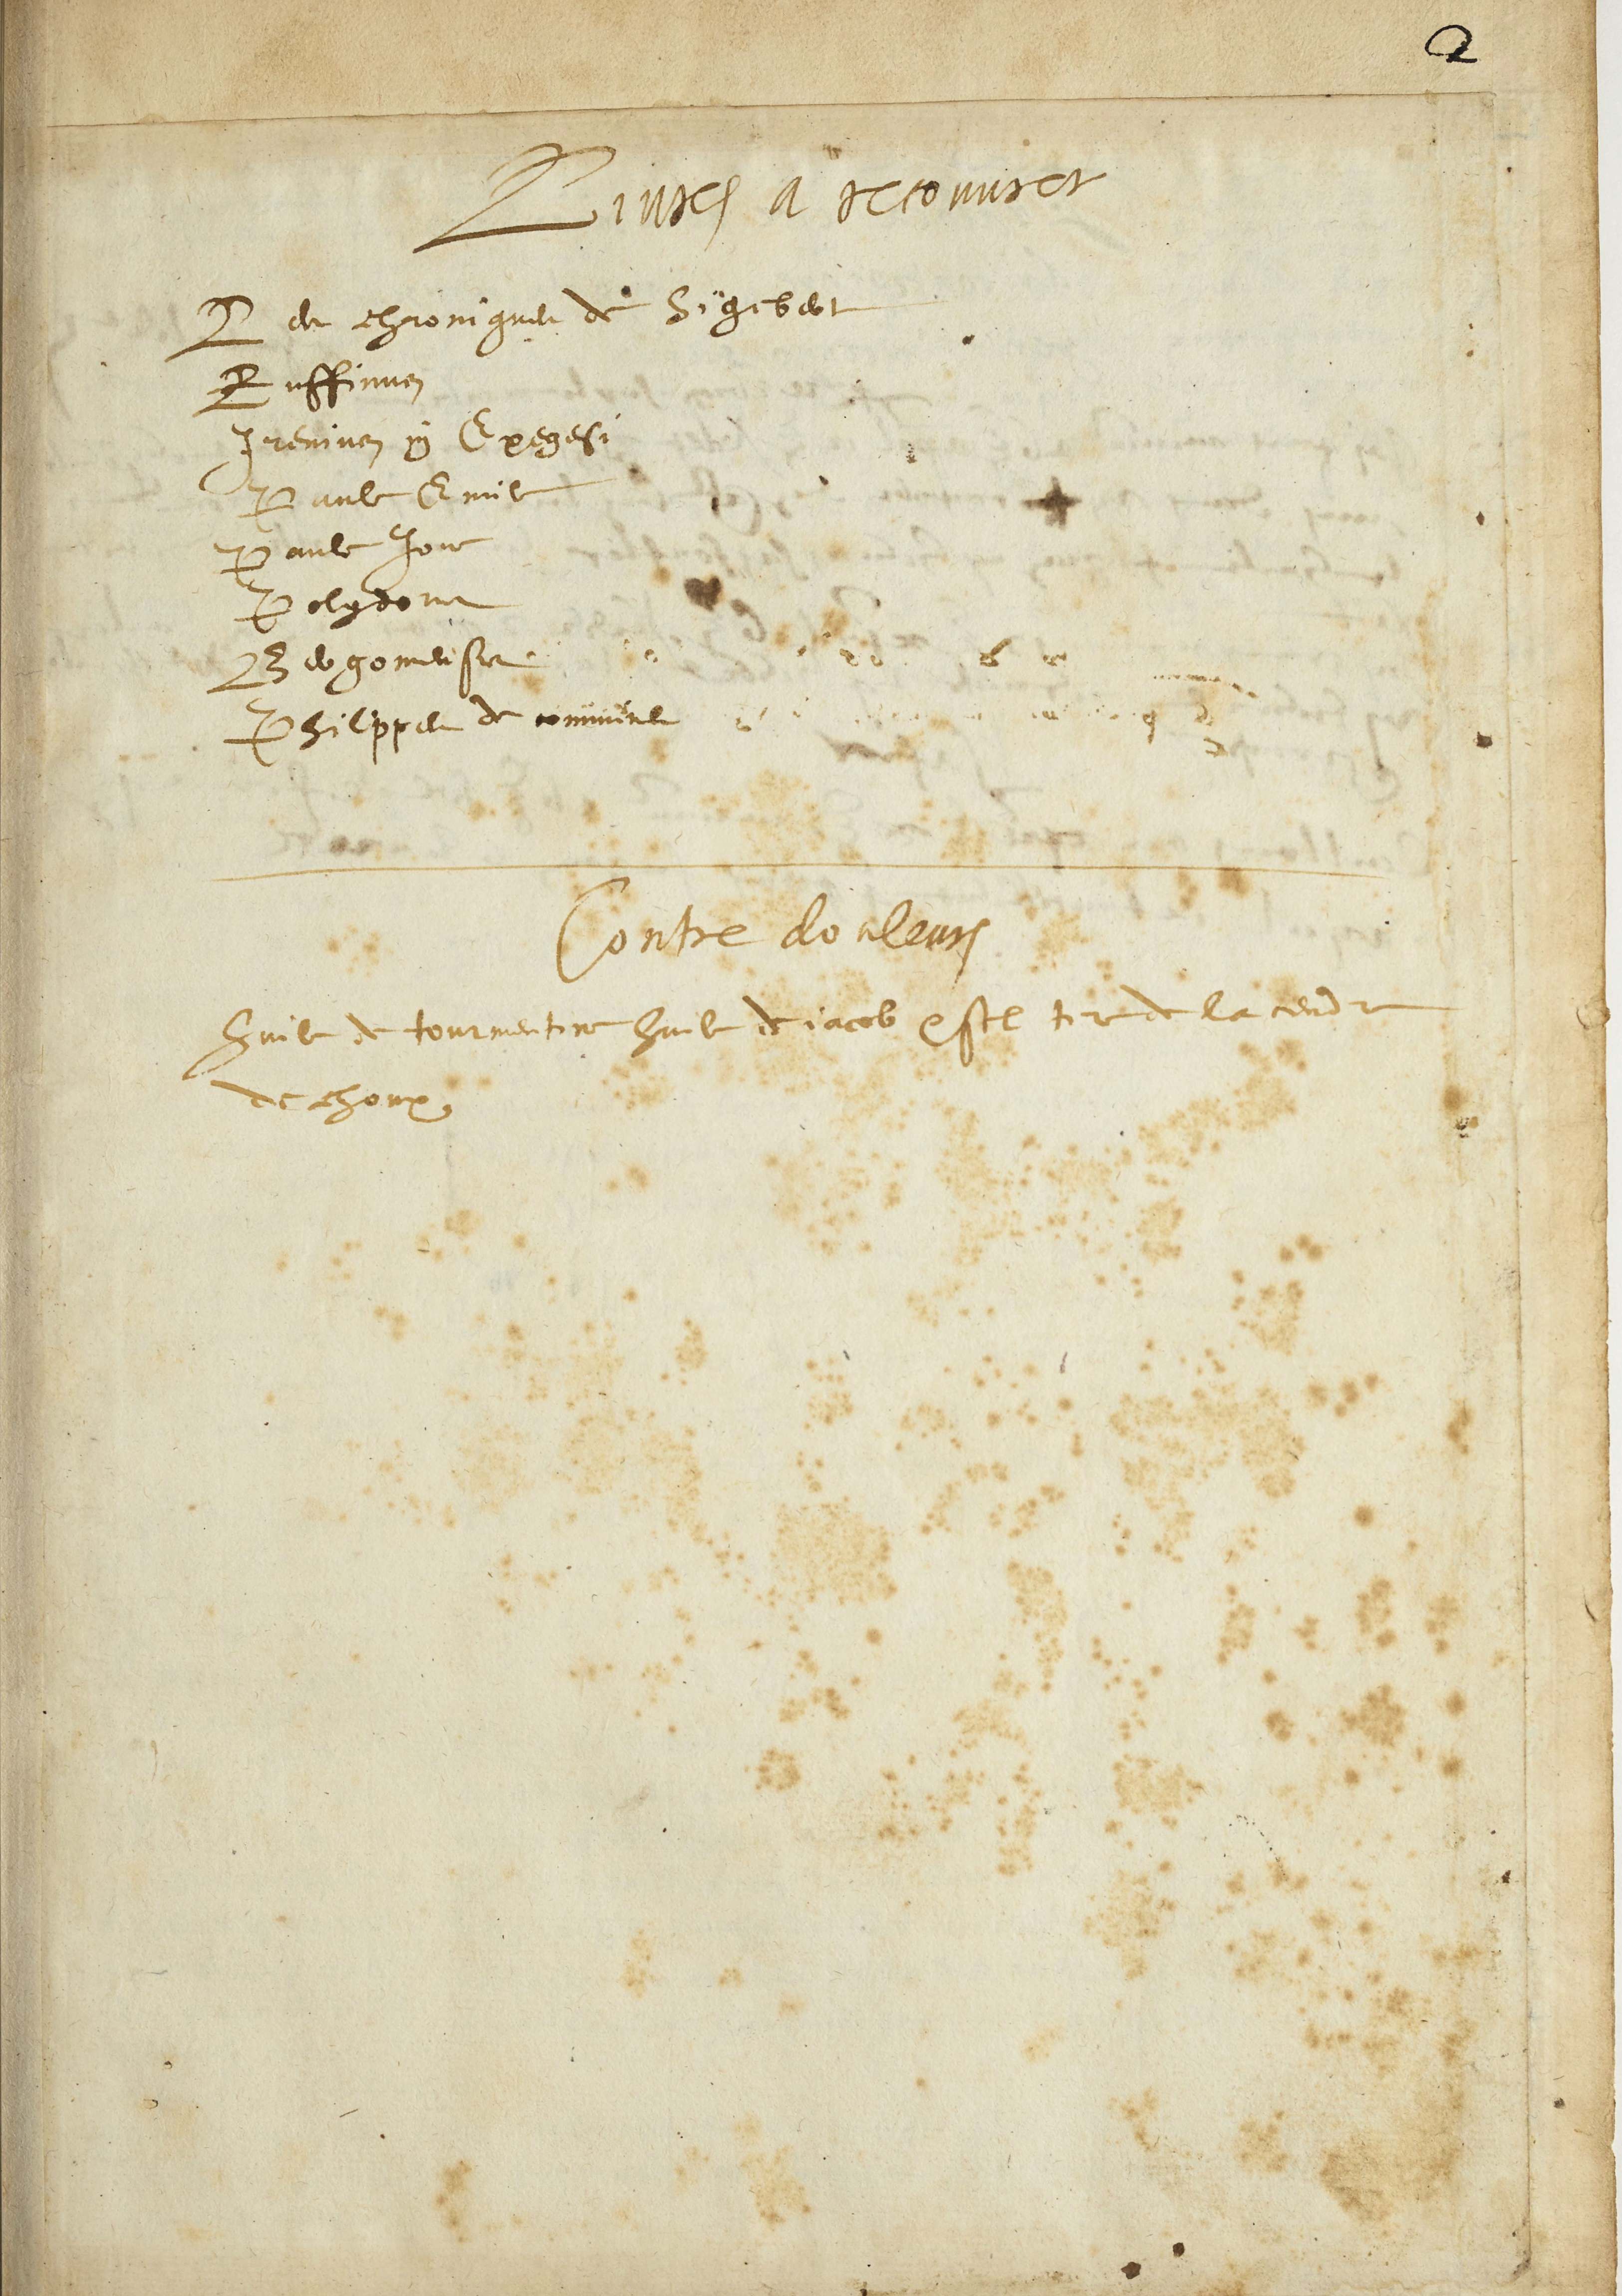 2
Livres a recouvrer
Les chroniques de Sigebert
Ruffinus
Irenicus in Exegesi
Paule Emile
Paule Jove
Polydore
Bergomense
Philippes de commines
Contre douleurs
Huile de tourmentine huile de iacob
tire de la cendre
de choux